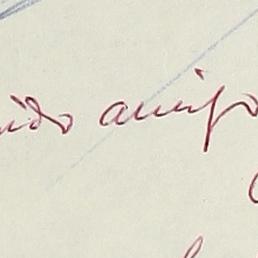 ido amigo